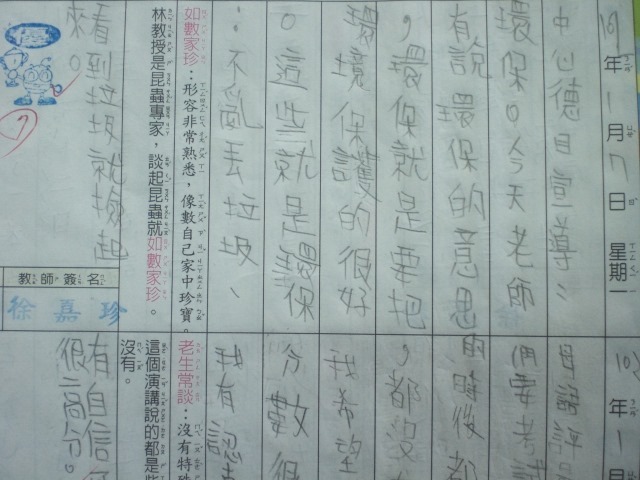 年1月7日 星期一
中心德目宣導：
環保。今天老師
有說環保的意思
，環保就是要把
環境保護的很好
。這些就是環保
：不亂丟垃圾、
如數家珍：形容非常熟悉，像數自己家中珍寶。
林教授是昆蟲專家，談起昆蟲就如數家珍。
看到垃圾就撿起
來。
教師簽名
徐嘉珍
年1月
們要考試
的時後都
，都沒
我希望
分數很
我有認
老生常談：沒有特殊
這個演講說的都是些
沒有。
有自信
很高分。